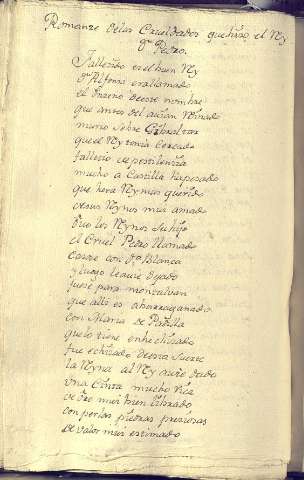 Romanze delas Crueldades que hizo el Rey
Dn Pedro.
Fallesido es el buen Rey
Dn Alfonso era llamado
el Onzeno deeste nombre
que antes del avian Reinado
murio sobre Gibraltar
que el Rey tenia cercado
fallesio de pestilensia
mucho a Castilla ha pesado
que hera Rey mui querido
de sus Reynos mui amado
los Reynos su hijo
el Cruel Pedro llamado
Casose con Da Blanca
y luego la avie dejado
fuese para montalvan
que alli es
con Maria de Padilla
que lo tiene enhechisado
fue echisado desta suerte
la Reyna al Rey avie dado
Una Cinta mucho rica
de oro mui bien labrado
con perlas piedras preziosas
de valor mui estimado